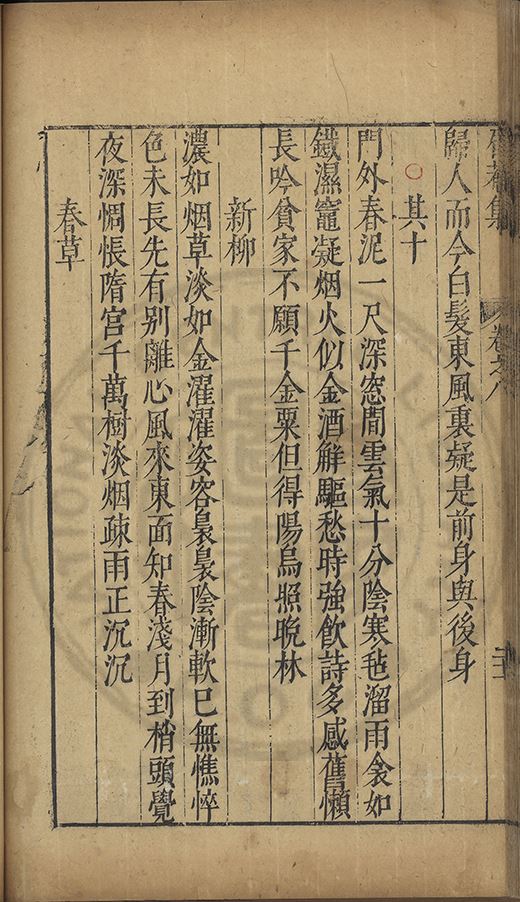 卷之八
歸人而今白髮東風裏疑是前身與後身
其十
門外春泥一尺深窓間雲氣十分陰寒毡溜雨衾如
鐵濕竈凝烟火似金酒觧驅愁時強飲詩多感舊懶
長吟貧家不願千金粟但得陽烏照晩林
新柳
濃如烟草淡如金濯濯姿容裊裊陰漸軟已無憔悴
色未長先有别離心風來東面知春淺月到梢頭覺
夜深惆悵隋宫千萬樹淡烟疎雨正沉沉
春草